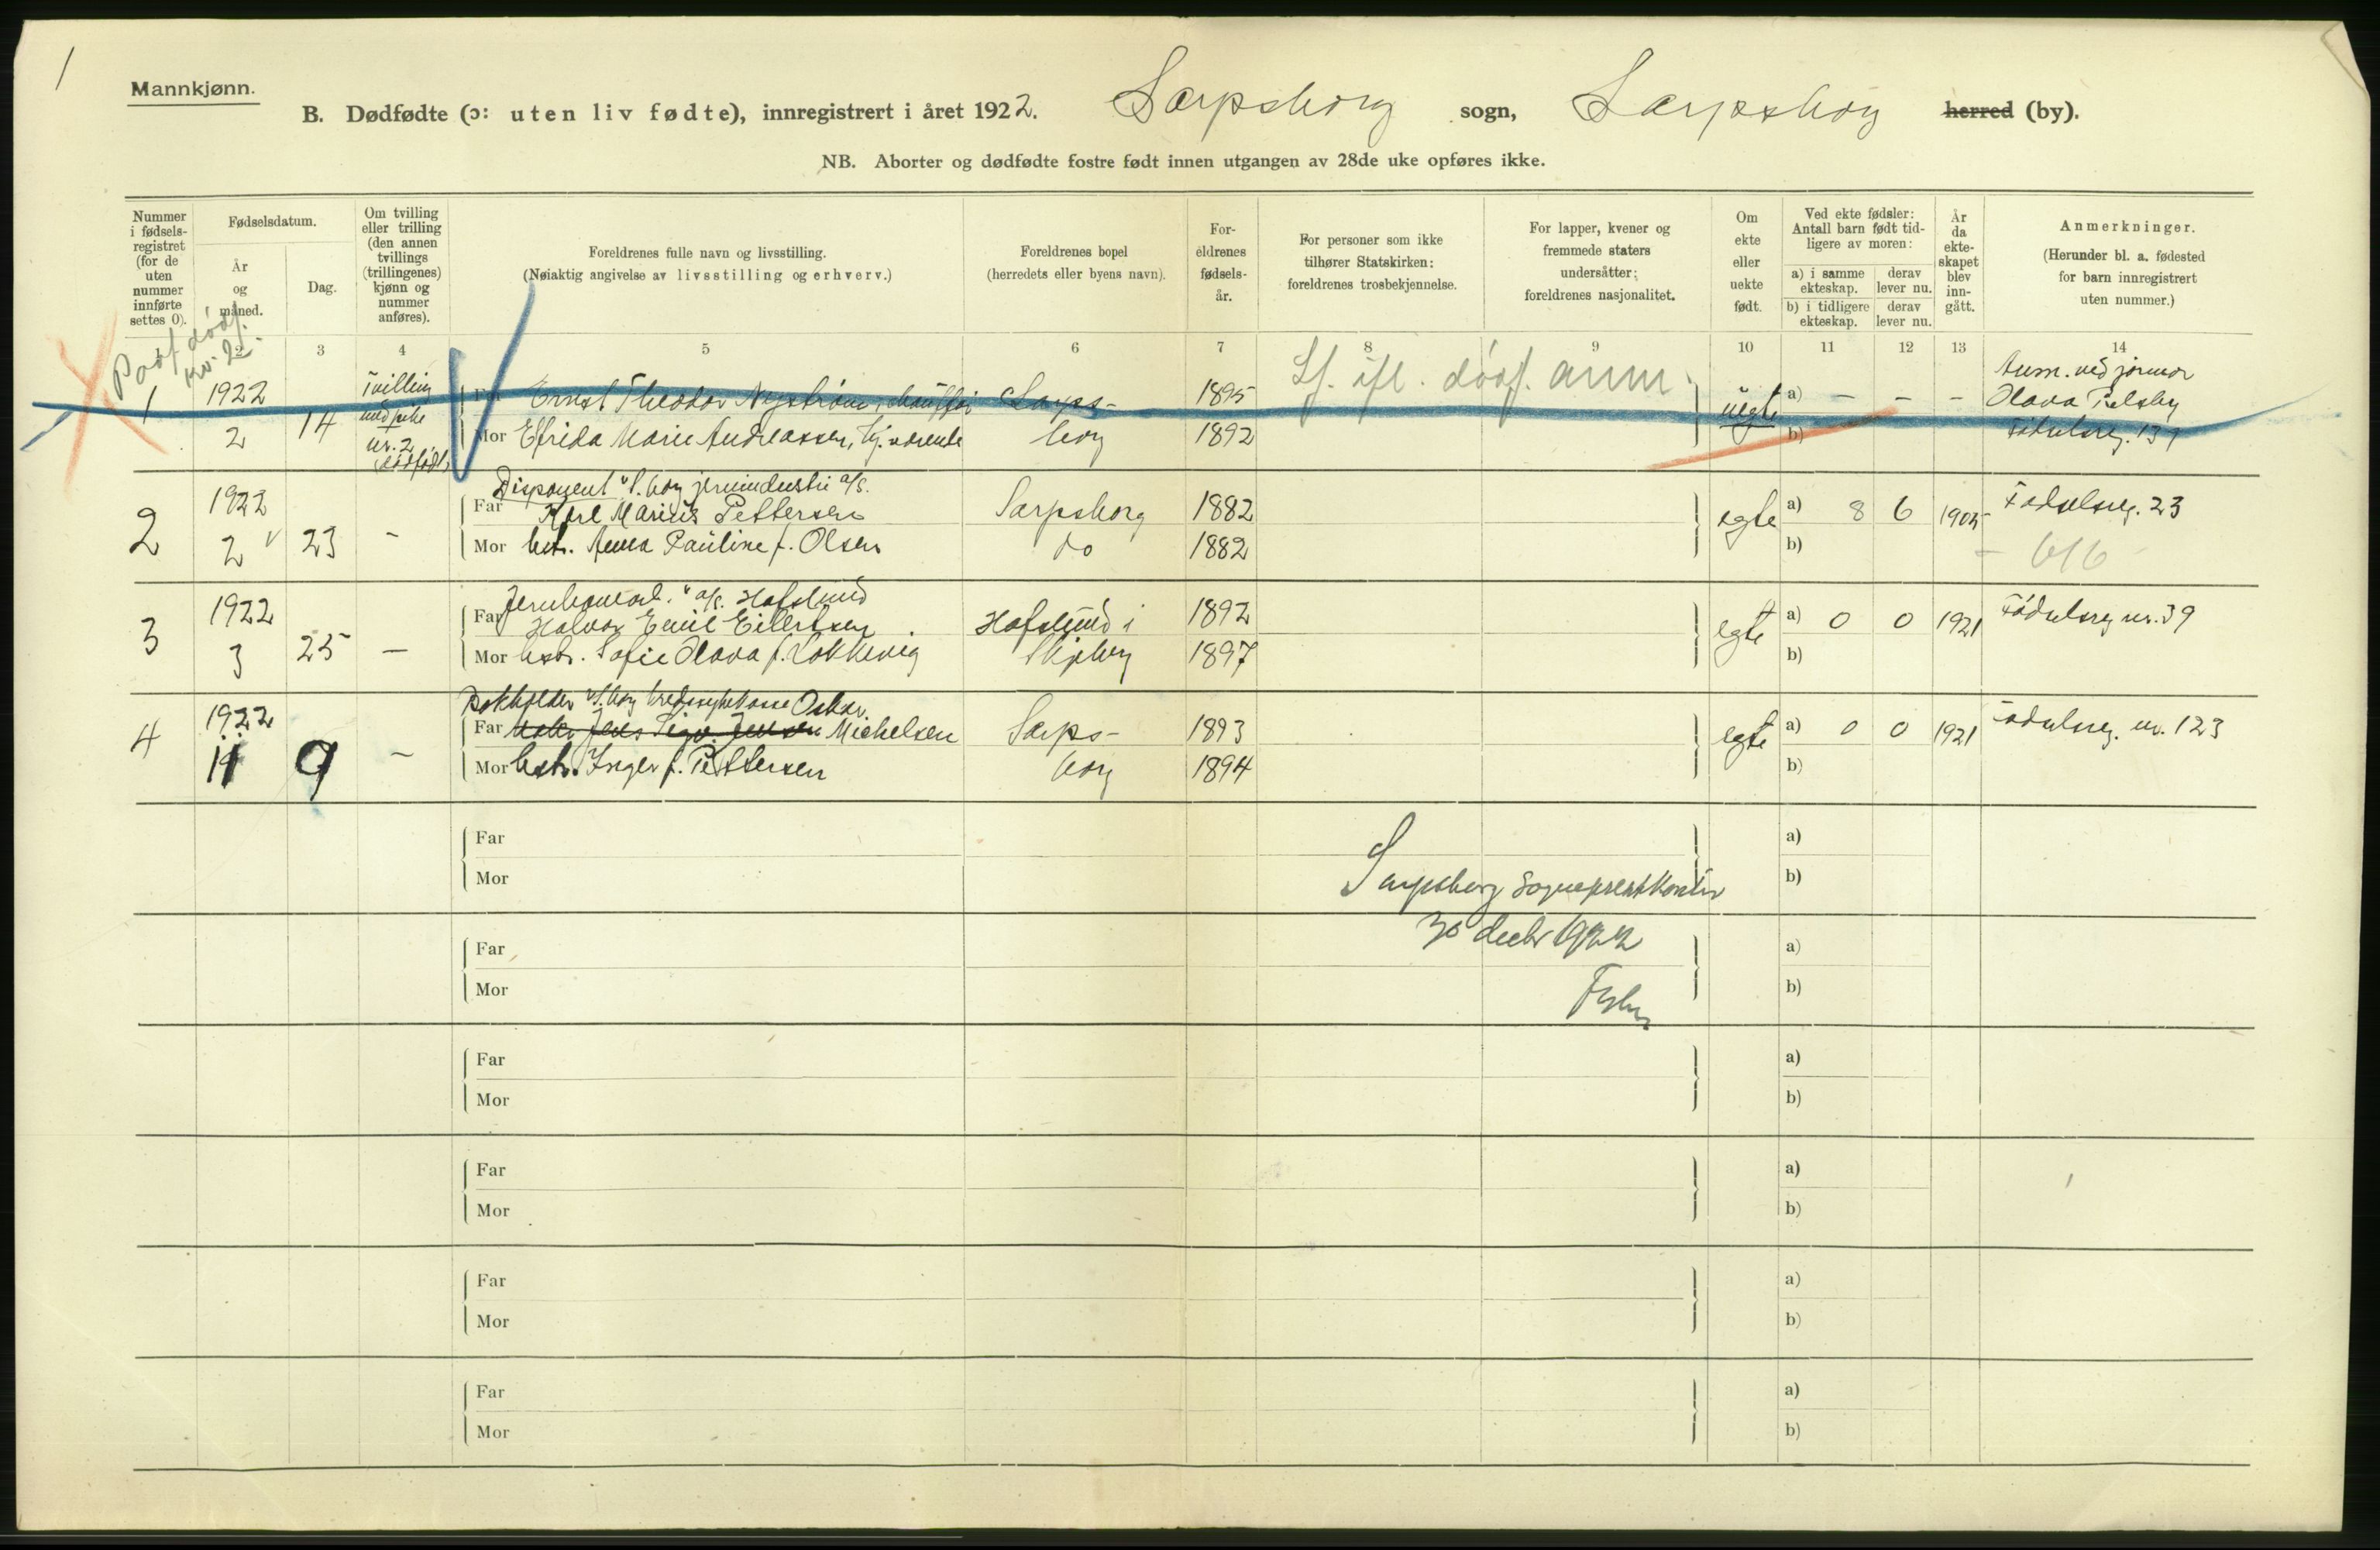 1
Mannkjønn.
B. Dødfødte (ɔ: uten liv fødte), innregistrert i året 1922. Sarpsborg sogn, Sarpsborg herred (by).
NB. Aborter og dødfødte fostre født innen utgangen av 28de uke opføres ikke.
Nummer i fødsels-registret (for de uten nummer innførte settes 0).
Fødselsdatum.
År og måned.
Dag.
Om tvilling eller trilling (den annen tvillings (trillingenes) kjønn og nummer anføres).
Foreldrenes fulle navn og livsstilling.
(Nøiaktig angivelse av livsstilling og erhverv.)
Foreldrenes bopel
(herredets eller byens navn).
For-eldrenes fødsels-år.
For personer som ikke tilhører Statskirken: foreldrenes trosbekjennelse.
For lapper, kvener og fremmede staters undersåtter; foreldrenes nasjonalitet.
Om ekte eller uekte født.
Ved ekte fødsler: Antall barn født tid-ligere av moren:
a) i samme ekteskap.
derav lever nu.
b) i tidligere ekteskap.
derav lever nu.
År da ekte-skapet blev inn-gått.
Anmerkninger.
(Herunder bl. a. fødested for barn innregistrert uten nummer.)
1 2 3 4 5 6 7 8 9 10 11 12 13 14
dødf.
kv. 2.
Lf. ifl. dødf. anm.
1 1922 2 14
Tvilling
med pike
nr. 2
dødfødt
Far Ernst Theodor Nystrøm, chauffør Sarps- 1895
Mor Elfrida Marie Andreassen, borg 1892
uegte a) – – –
b)
Anm. ved jormor
Olava
Fødselsreg. 139
2 1922 2 23 –
Disponent v/S.borg jernindustri a/s.
Far Karl Marius Pettersen Sarpsborg 1882
Mor hst. Anna Pauline f. Olsen do 1882
egte a) 8 6 1905
b)
Fødselsreg. 23
– 6/6 –
3 1922 3 25 –
a/s. Hafslund
Far Halvor Emil Eilertsen Hafslund i 1892
Mor hst. Sofie Olava f. Løkkevig Skjeberg 1897
egte a) 0 0 1921
b)
Fødselsreg nr. 39
4 1922 11 9 –
Bokholder v/S.borg kredssykekasse Oskar
Far Jens Sigv. Jensen Michelsen Sarps- 1893
Mor hst. Inger f. Pettersen borg 1894
egte a) 0 0 1921
b)
Fødselsreg. nr. 123
Far a)
Mor b)
Sarpsborg Sogneprestkontor
30 decbr 1922
Far a)
Mor b)
Far a)
Mor b)
Far a)
Mor b)
Far a)
Mor b)
Far a)
Mor b)